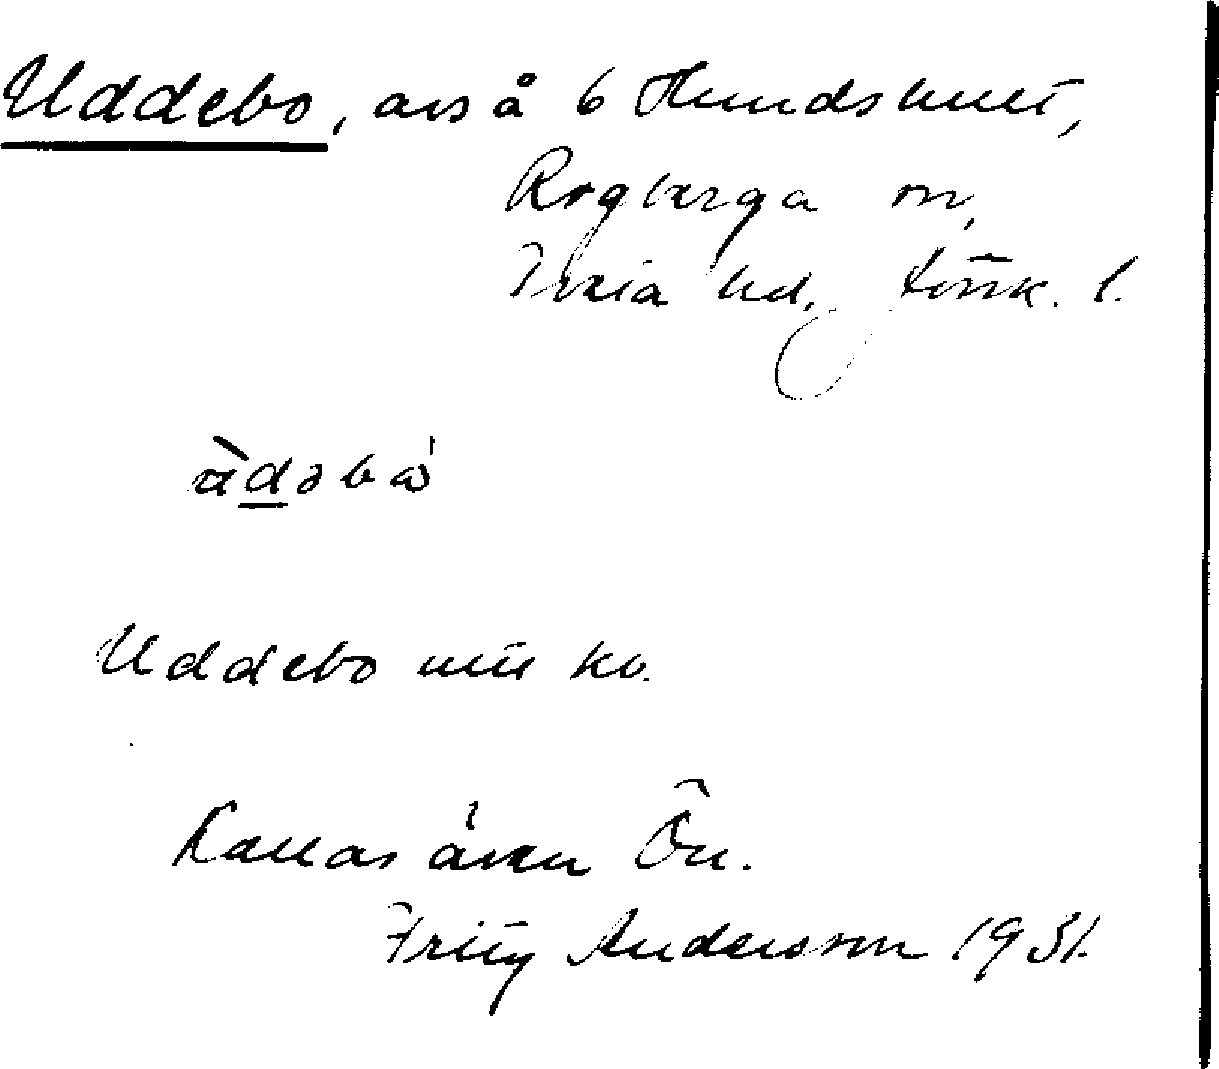 Uddebo, avs å 6 Hundshult,
Rogberga sn,
Tveta hd, Jönk. l.
Uddebo utit kv.
Kallas även Ön.
Fritz Andersson 1931.